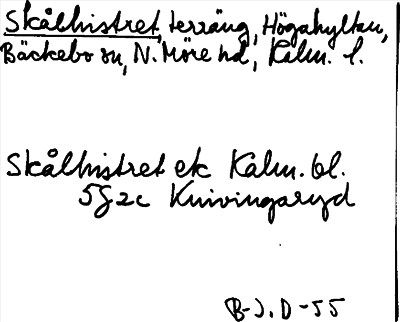 Skålhistret, terräng, Högahyltan,
Bäckebo sn, N. Möre hd, Kalm. l.
Skålhistret ek Kalm. bl.
5g2c Knivingaryd
B-J. D-55